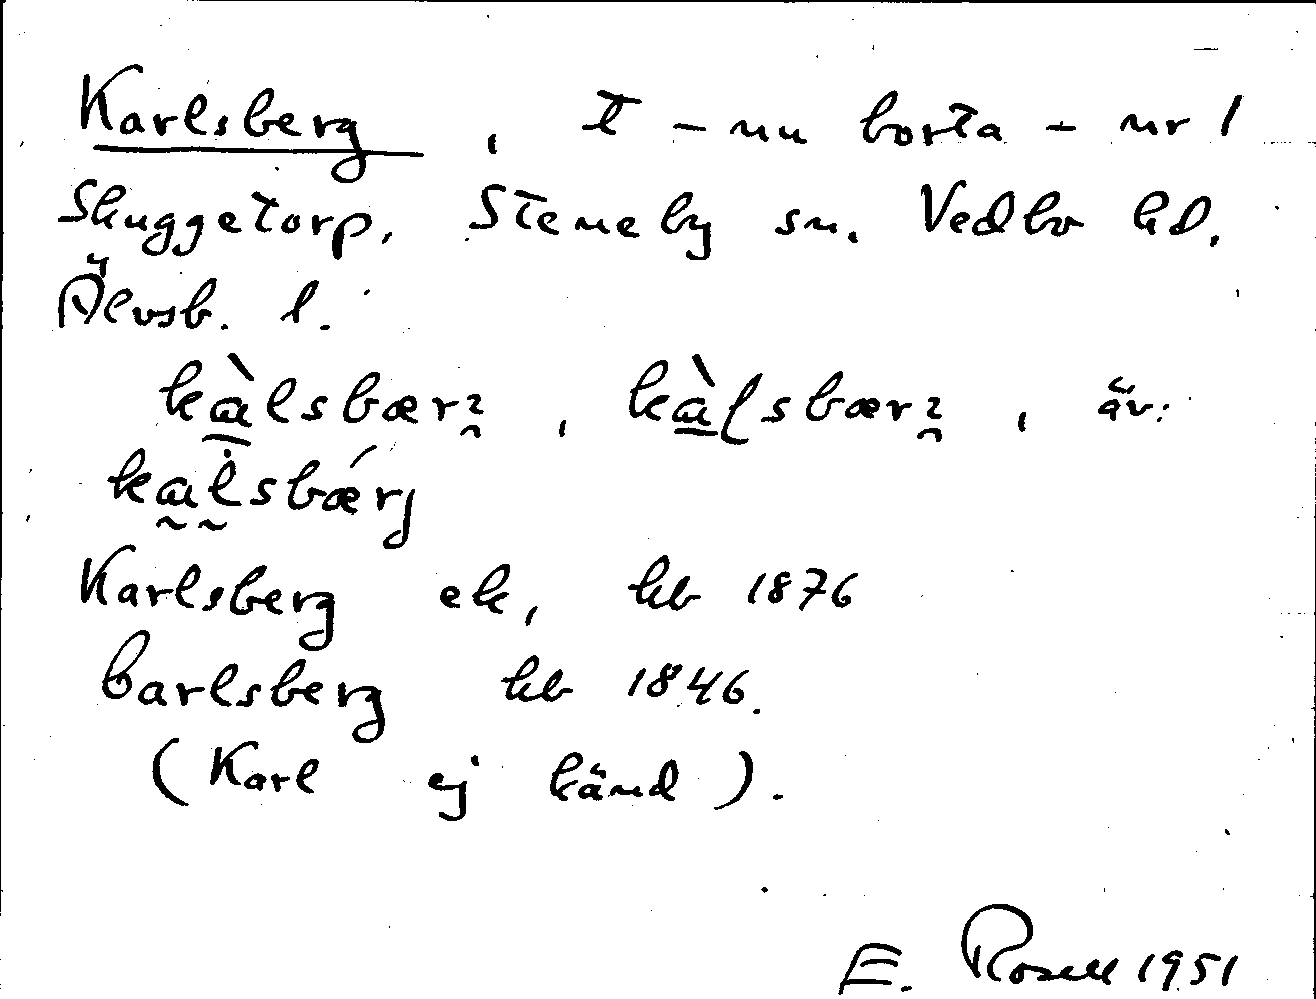 Karlsberg, t – nu borta – nr 1
Skuggetorp, Steneby sn. Vedbo hd.
Älvsb. l.
kàlsbærɂ, kàlsbærɂ, äv:
kalsbǽrj
Karlsberg ek, kb 1876
Carlsberg kb 1846.
(Karl ej känd).
E. Rosell 1951